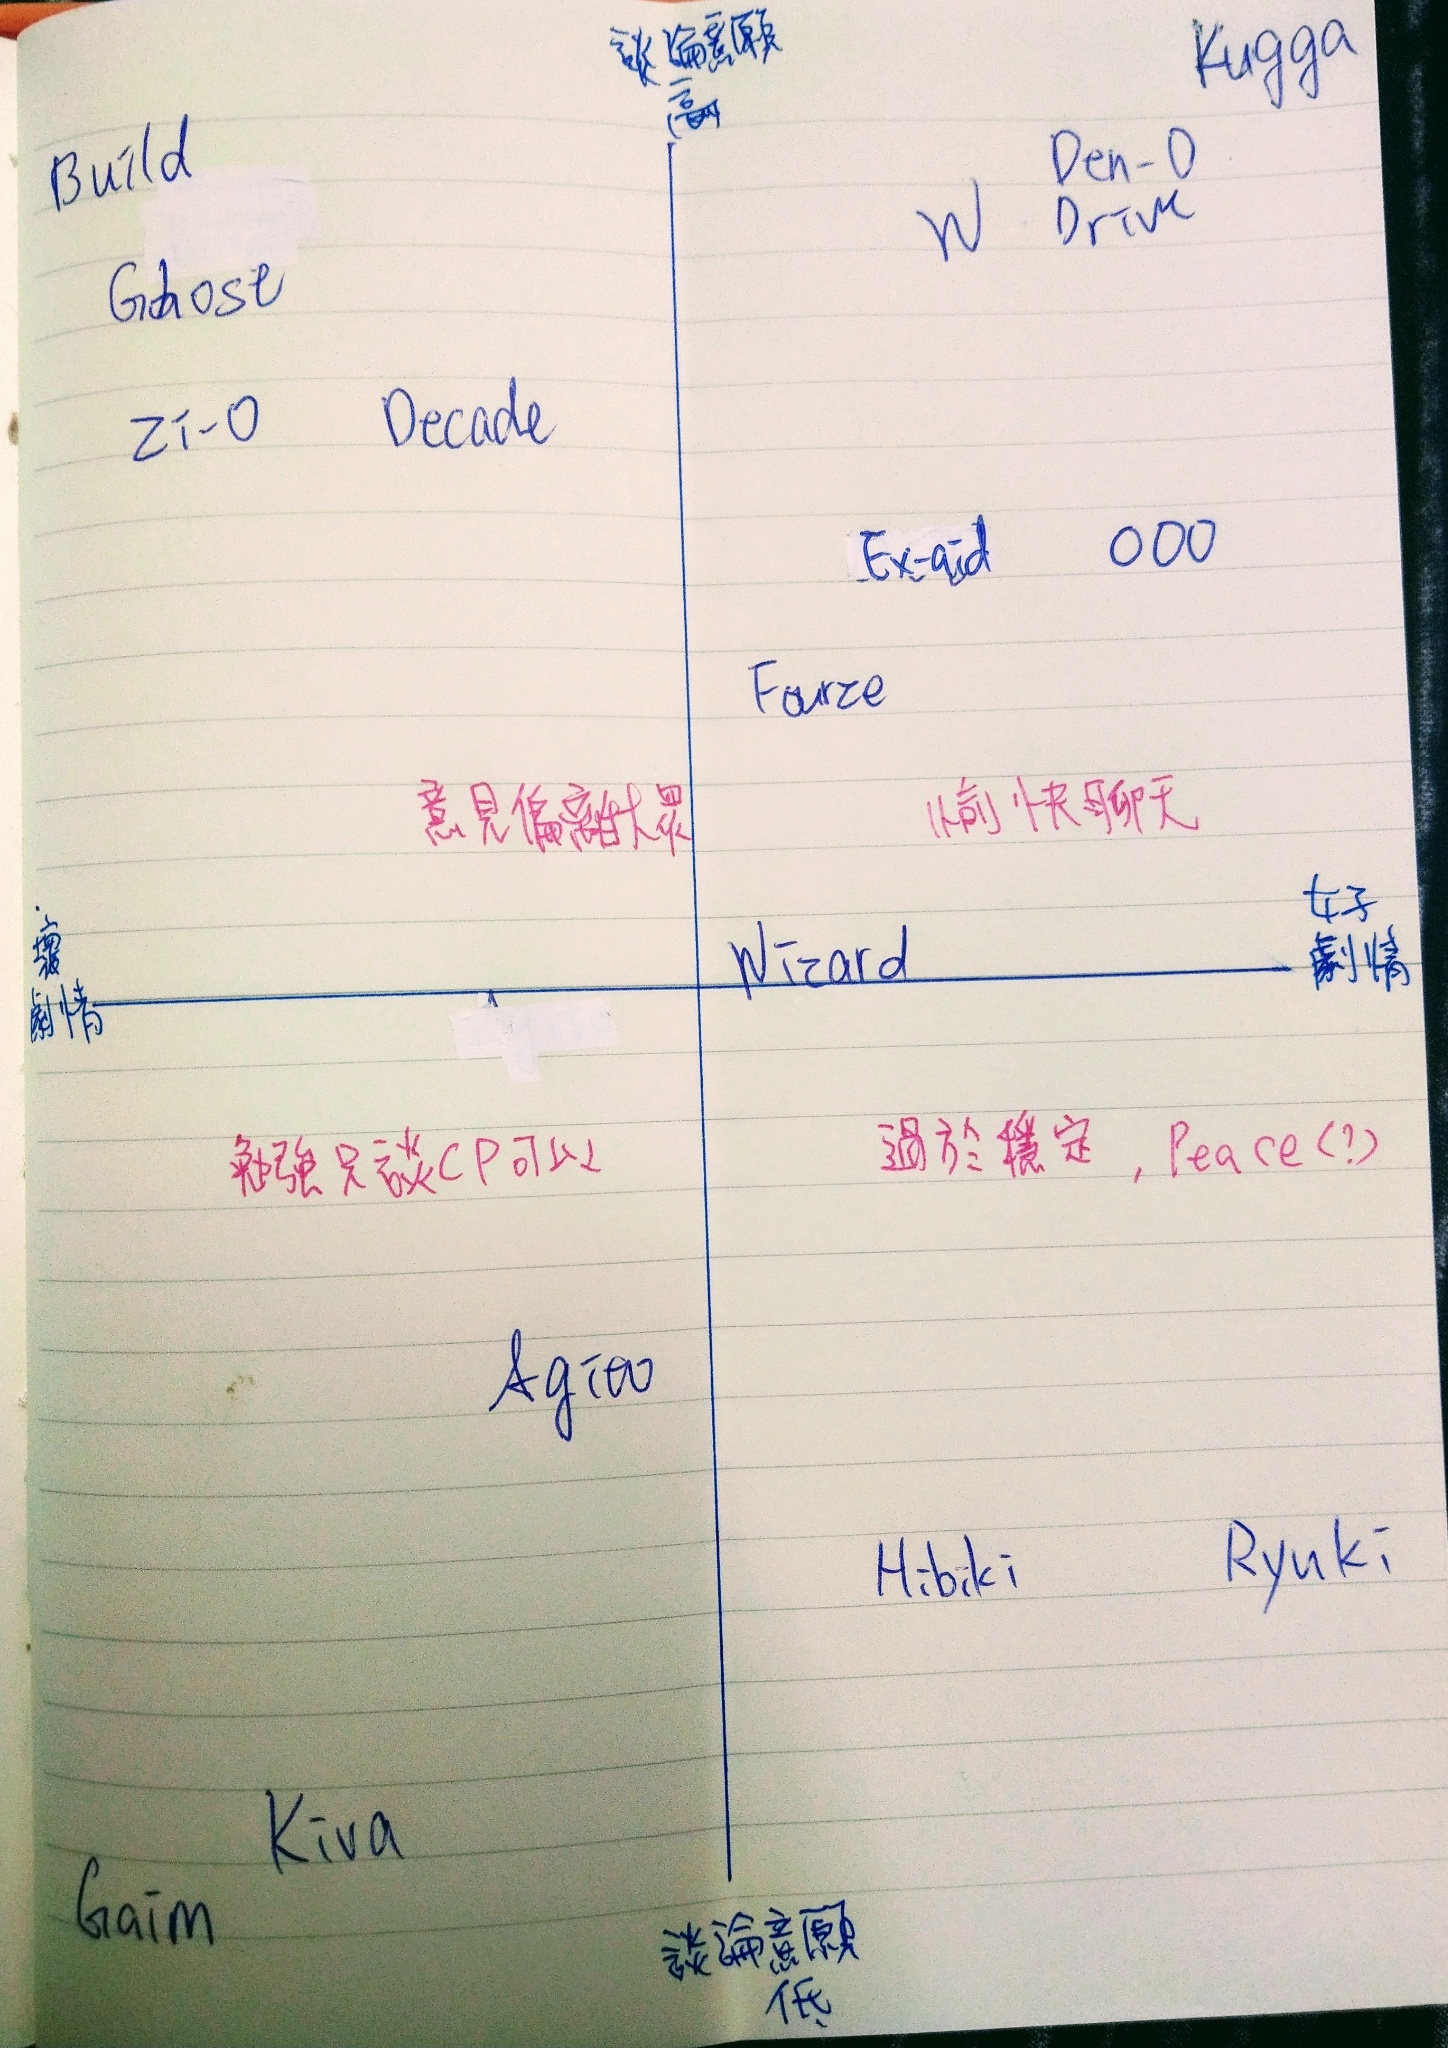 談論意願
高
Kugga
Build
Den-O
W Drive
Ghost
Zi-O Decade
Ex-aid OOO
Fourze
意見偏離大眾
愉快聊天
壞
劇情
好
劇情
Wizard
勉強只談CP可以
過於穩定，Peace(?)
Agito
Hibiki Ryuki
Kiva
Gaim
談論意願
低